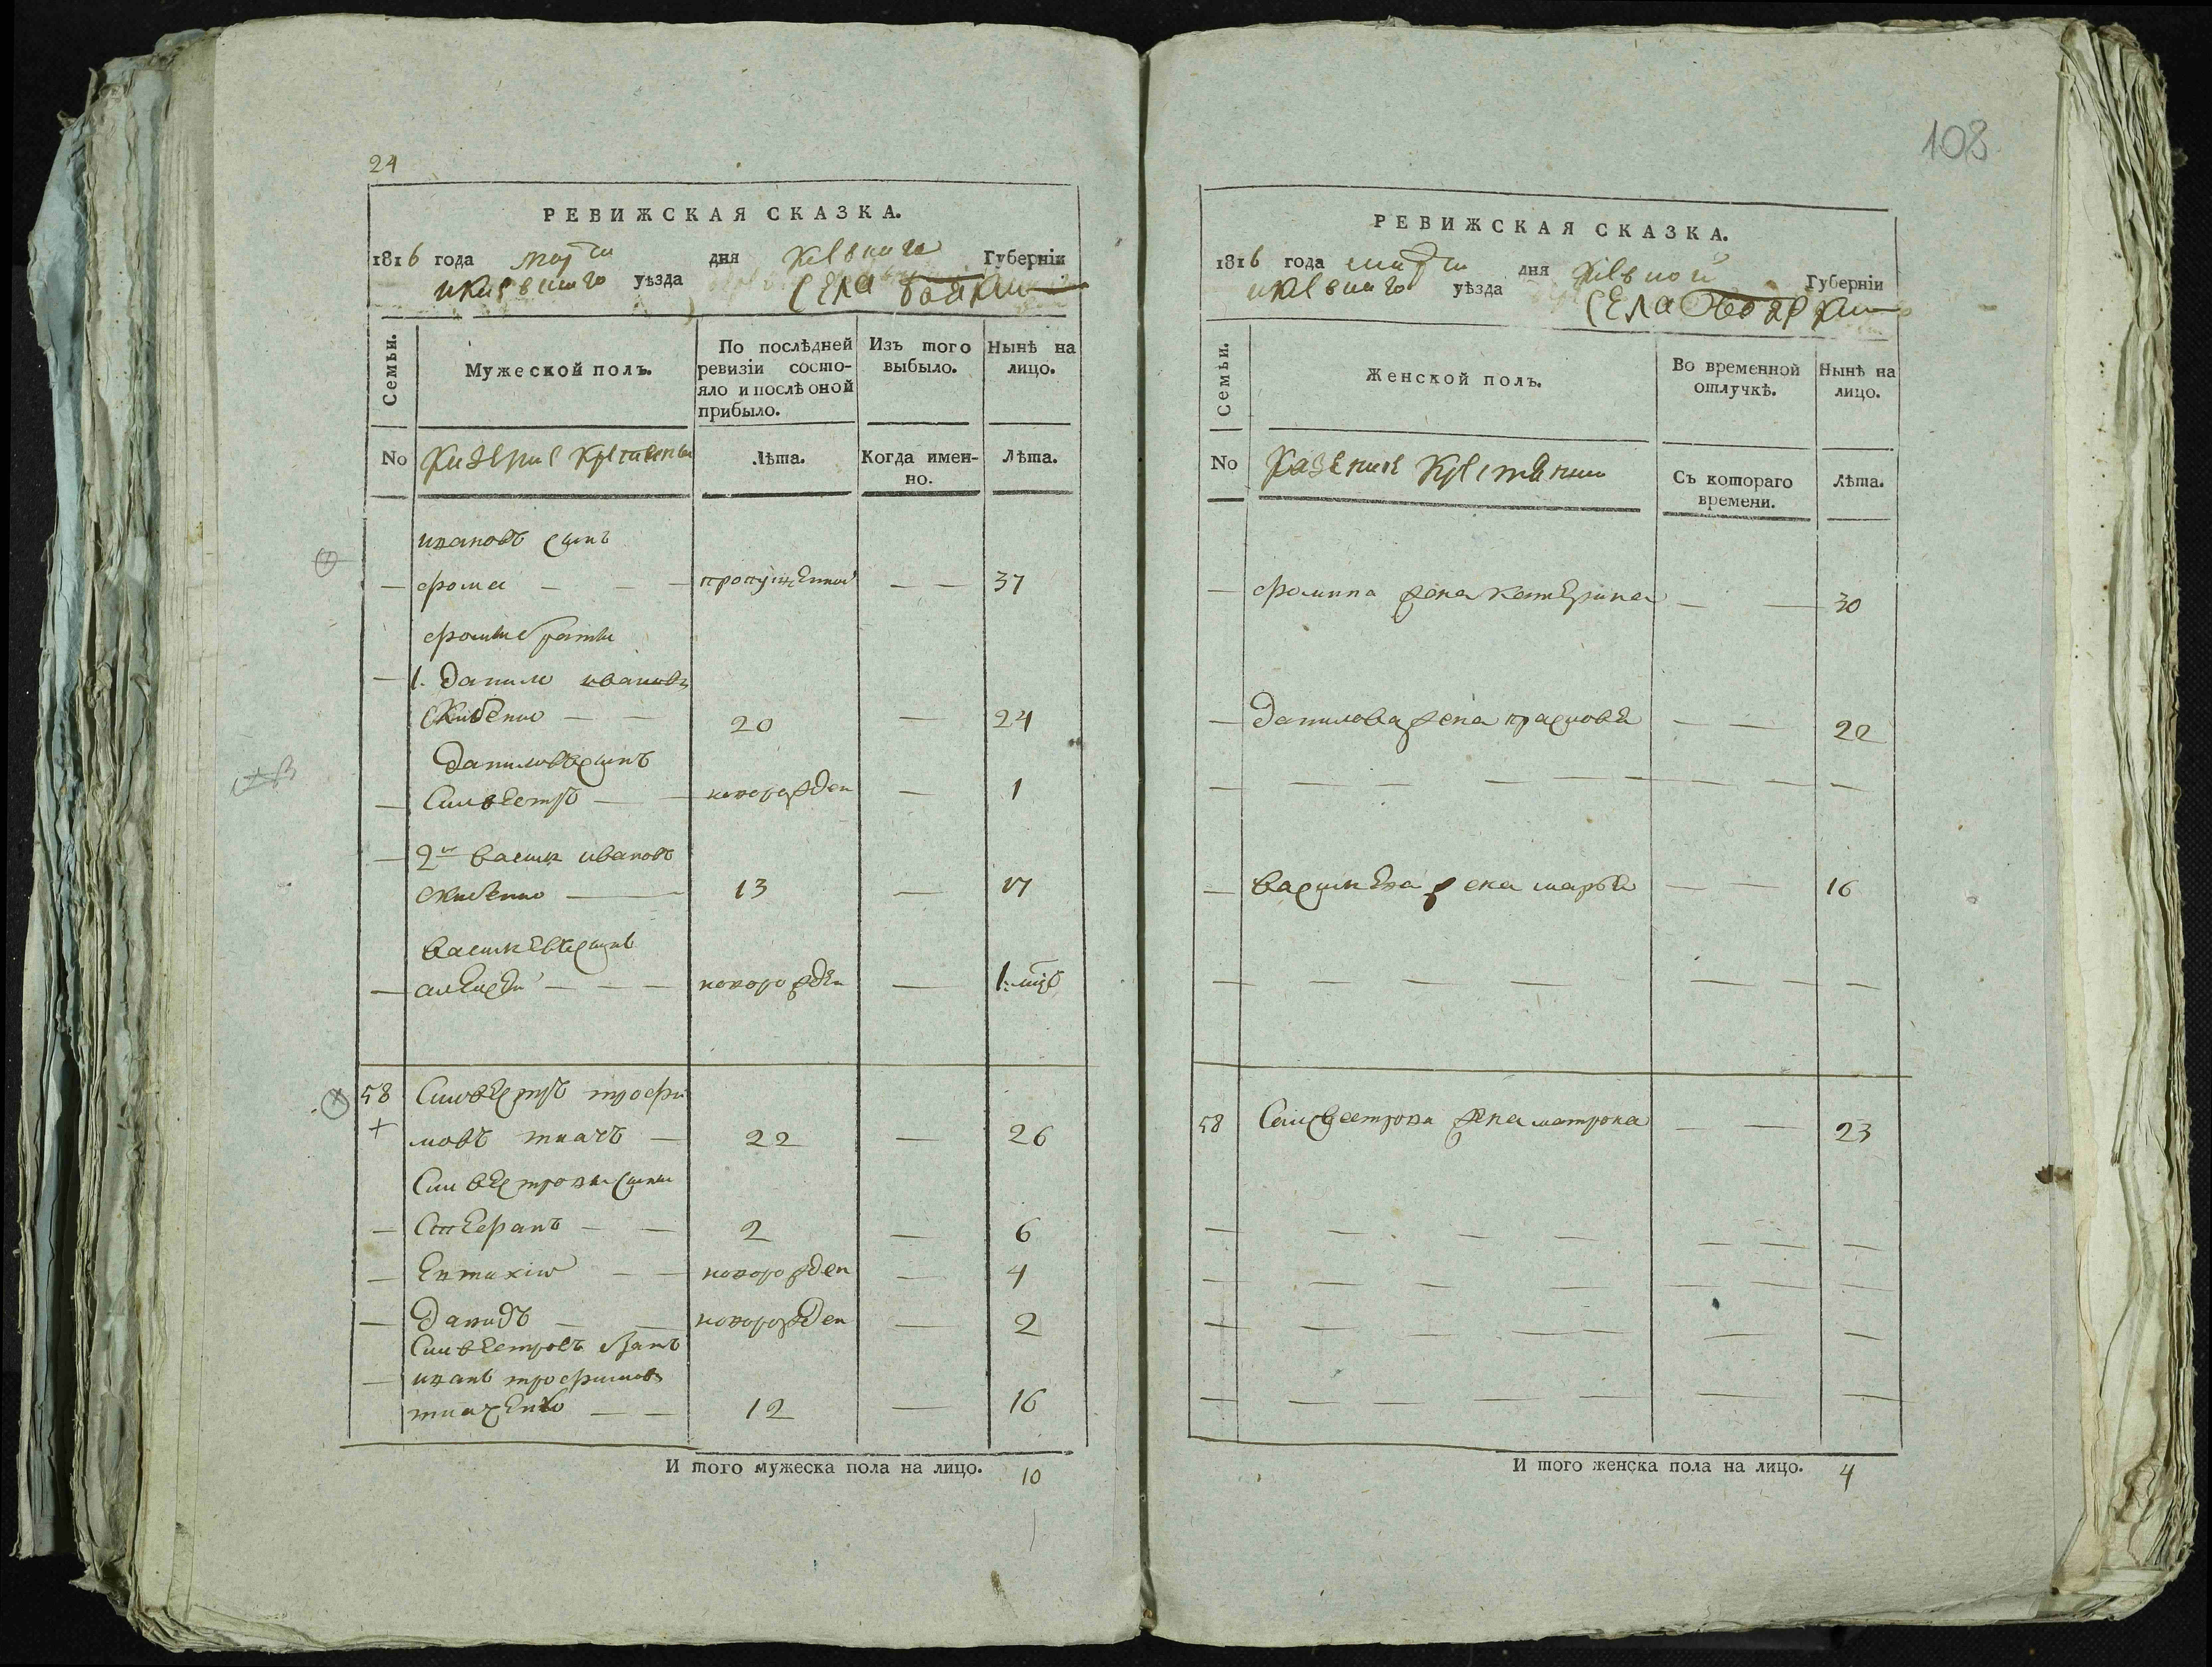 24
РЕВИЖСКАЯ СКАЗКА.
1816 года марта дня Губерніи
уѣзда Села Боярки
Семьи.
Мужеской полъ.
По послѣдней ревизіи состо-
яло и послѣ оной
прибыло.
Изъ того
выбыло.
Нынѣ на
лицо.
No
Казенние Крестяни
Лѣта.
Когда имен-
но.
Лѣта.
ивановъ синъ
— фома — — — пропущенной — — 37
фоми брати
— 1. данило ивановъ
Скибенко — — 20 — 24
даниловъ синъ
— Силвестръ — — новорожден — 1
— 2й василь ивановъ
скибенко — 13 — 17
васильевъ синъ
— алексей — — — новорожден — 1. мцъ
58 Силвестръ трофи
+ мовъ ткачъ — 22 — 26
Силвестрови сини
— Стефанъ — — 2 — 6
— Евтихій — — новорожден — 4
— давидъ — — новорожден — 2
Силвестровъ братъ
— иванъ трофимовъ
ткаченко — — 12 — 16
И того мужеска пола на лицо. 10
108
РЕВИЖСКАЯ СКАЗКА.
1816 года марта дня Губерніи
уѣзда Села Боярки
Семьи.
Женской полъ.
Во временной
отлучкѣ.
Нынѣ на
лицо.
No
Казенние Крестяни
Съ котораго
времени.
Лѣта.
— фомина жена катерина — — 30
— данилова жена прасковя — — 22
— василева жена маря — — 16
58 Силвестрова жена матрона — — 23
И того женска пола на лицо. 4